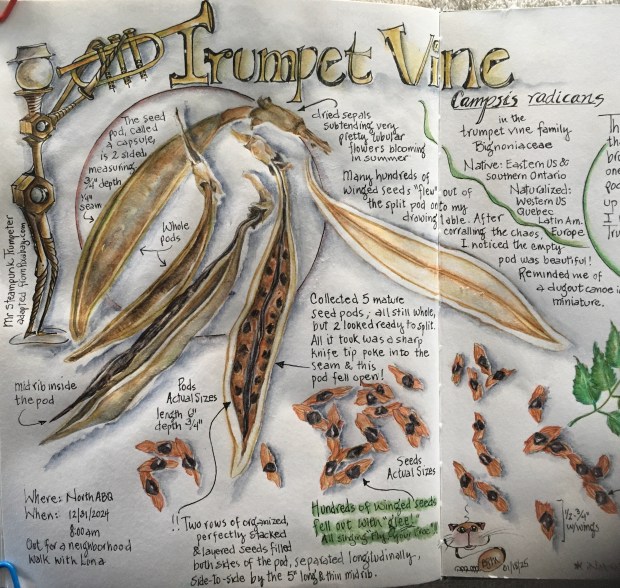 Trumpet Vine
Campsis radicans
in the
trumpet vine family
Bignoniaceae
Native: Eastern US &
southern Ontario
Naturalized:
Western US
Quebec
Latin Am.
Europe
dried sepals
subtending very
pretty tubular
flowers blooming
in summer
The seed
pod, called
a capsule,
is 2 sided,
measuring
3/4" depth
1/4"
seam
Whole
pods
Many hundreds of
winged seeds "flew" out of
the split pod onto my
drawing table. After
corralling the chaos,
I noticed the empty
pod was beautiful!
Reminded me of
a dugout canoe in
miniature.
Mr Steampunk Trumpeter
adapted from
Collected 5 mature
seed pods, all still whole,
but 2 looked ready to split.
All it took was a sharp
knife tip poke into the
seam & this
pod fell open!
midrib inside
the pod
Pods
Actual Sizes
length 6"
depth 3/4"
Seeds
Actual Sizes
Where: North ABQ
When: 12/31/2024
8:00am
Out for a neighborhood
walk with Lona
!! Two rows of organized,
perfectly stacked
& layered seeds filled
both sides of the pod, separated longitudinally,
side-to-side by the 5" long & thin midrib.
Hundreds of winged seeds
fell out with "glee!"
1/2-3/4"
w/wings
01/13/25